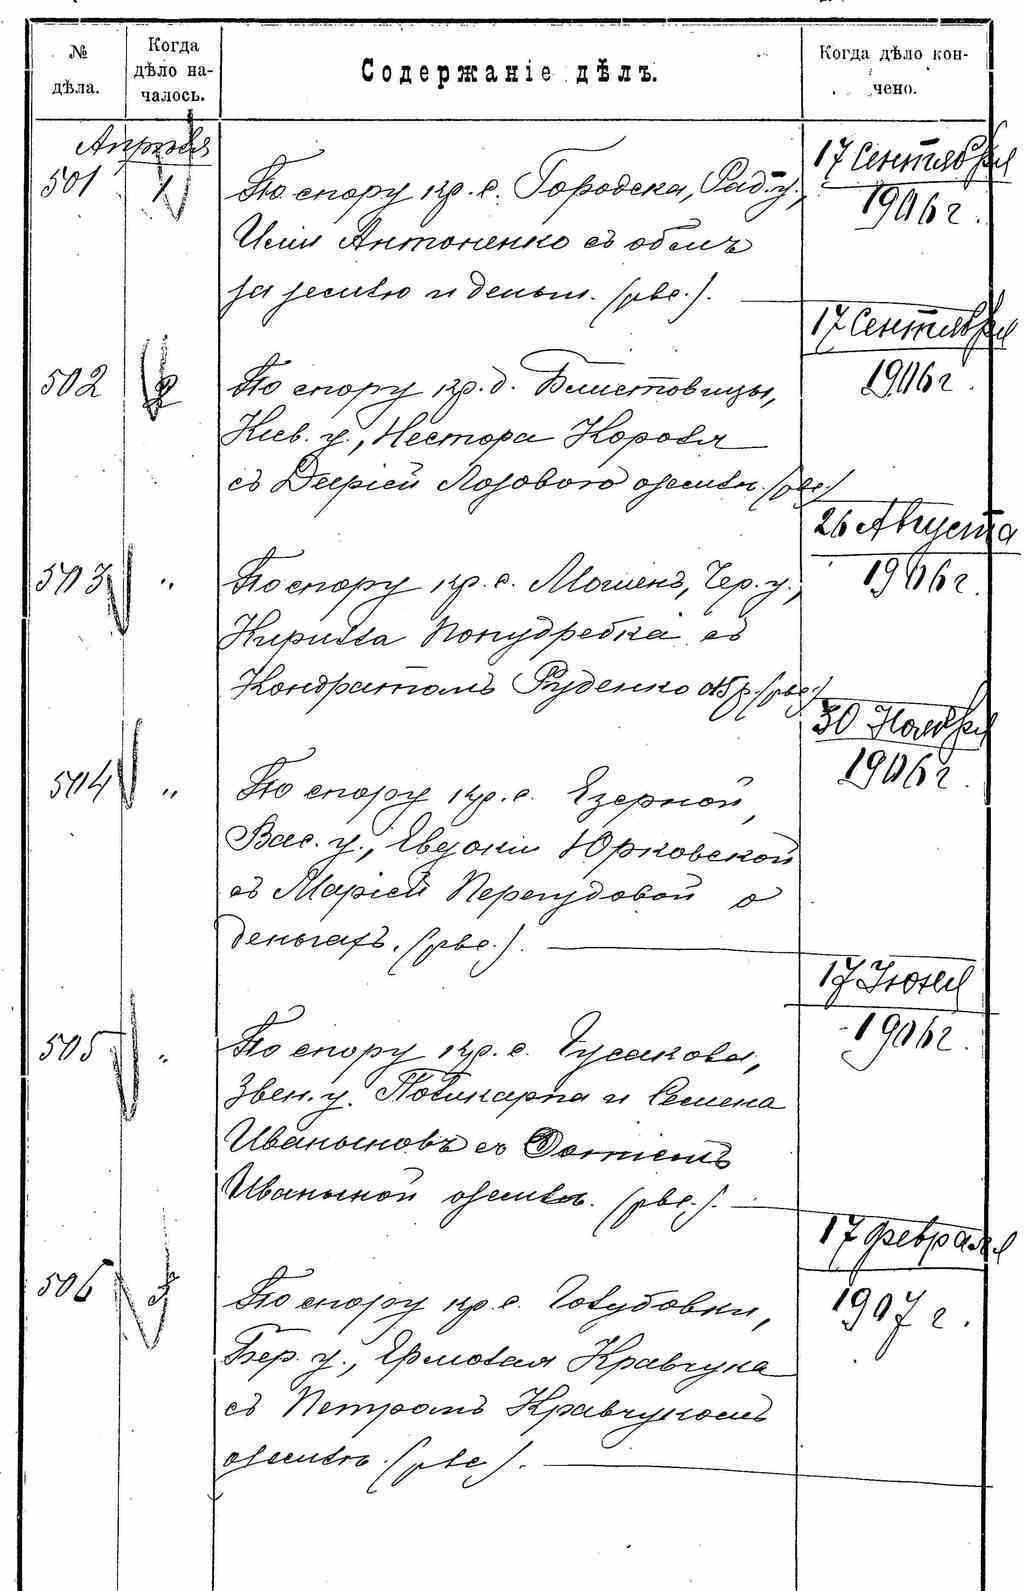 № дѣла.
Когда дѣло началось.
Содержаніе дѣлъ.
Когда дѣло кончено.
Апрѣля
501
1
По спору кр. с. Городска, Рад. у.,
Иліи Антоненко съ общ.
за землю и деньги. (рвс.).
17 Сентября
1906 г.
502
2
По спору кр. д. Блиставицы,
Кіев. у., Нестора Короля
съ Даріей Лозового о землѣ. (рвс.)
17 Сентября
1906 г.
503
"
По спору кр. с. Мошенъ, Чер. у.,
Кирилла Попудребка съ
Кондратомъ Руденко (рвс.)
26 Августа
1906 г.
504
"
По спору кр. с. Езерной,
Вас. у., Евдокіи Юрковской
съ Маріей Перегудовой о
деньгахъ. (рвс.).
30 Ноября
1906 г.
505
"
По спору кр. с. Гусакова,
Звен. у. Поликарпа и Семена
Иваныновъ съ
Иваныной о землѣ. (рвс.).
17 Іюня
1906 г.
506
3
По спору кр. с. Голубовки,
Бер. у., Ермолая Кравчука
съ Петромъ Кравчукомъ
о землѣ. (рвс.).
17 Февраля
1907 г.